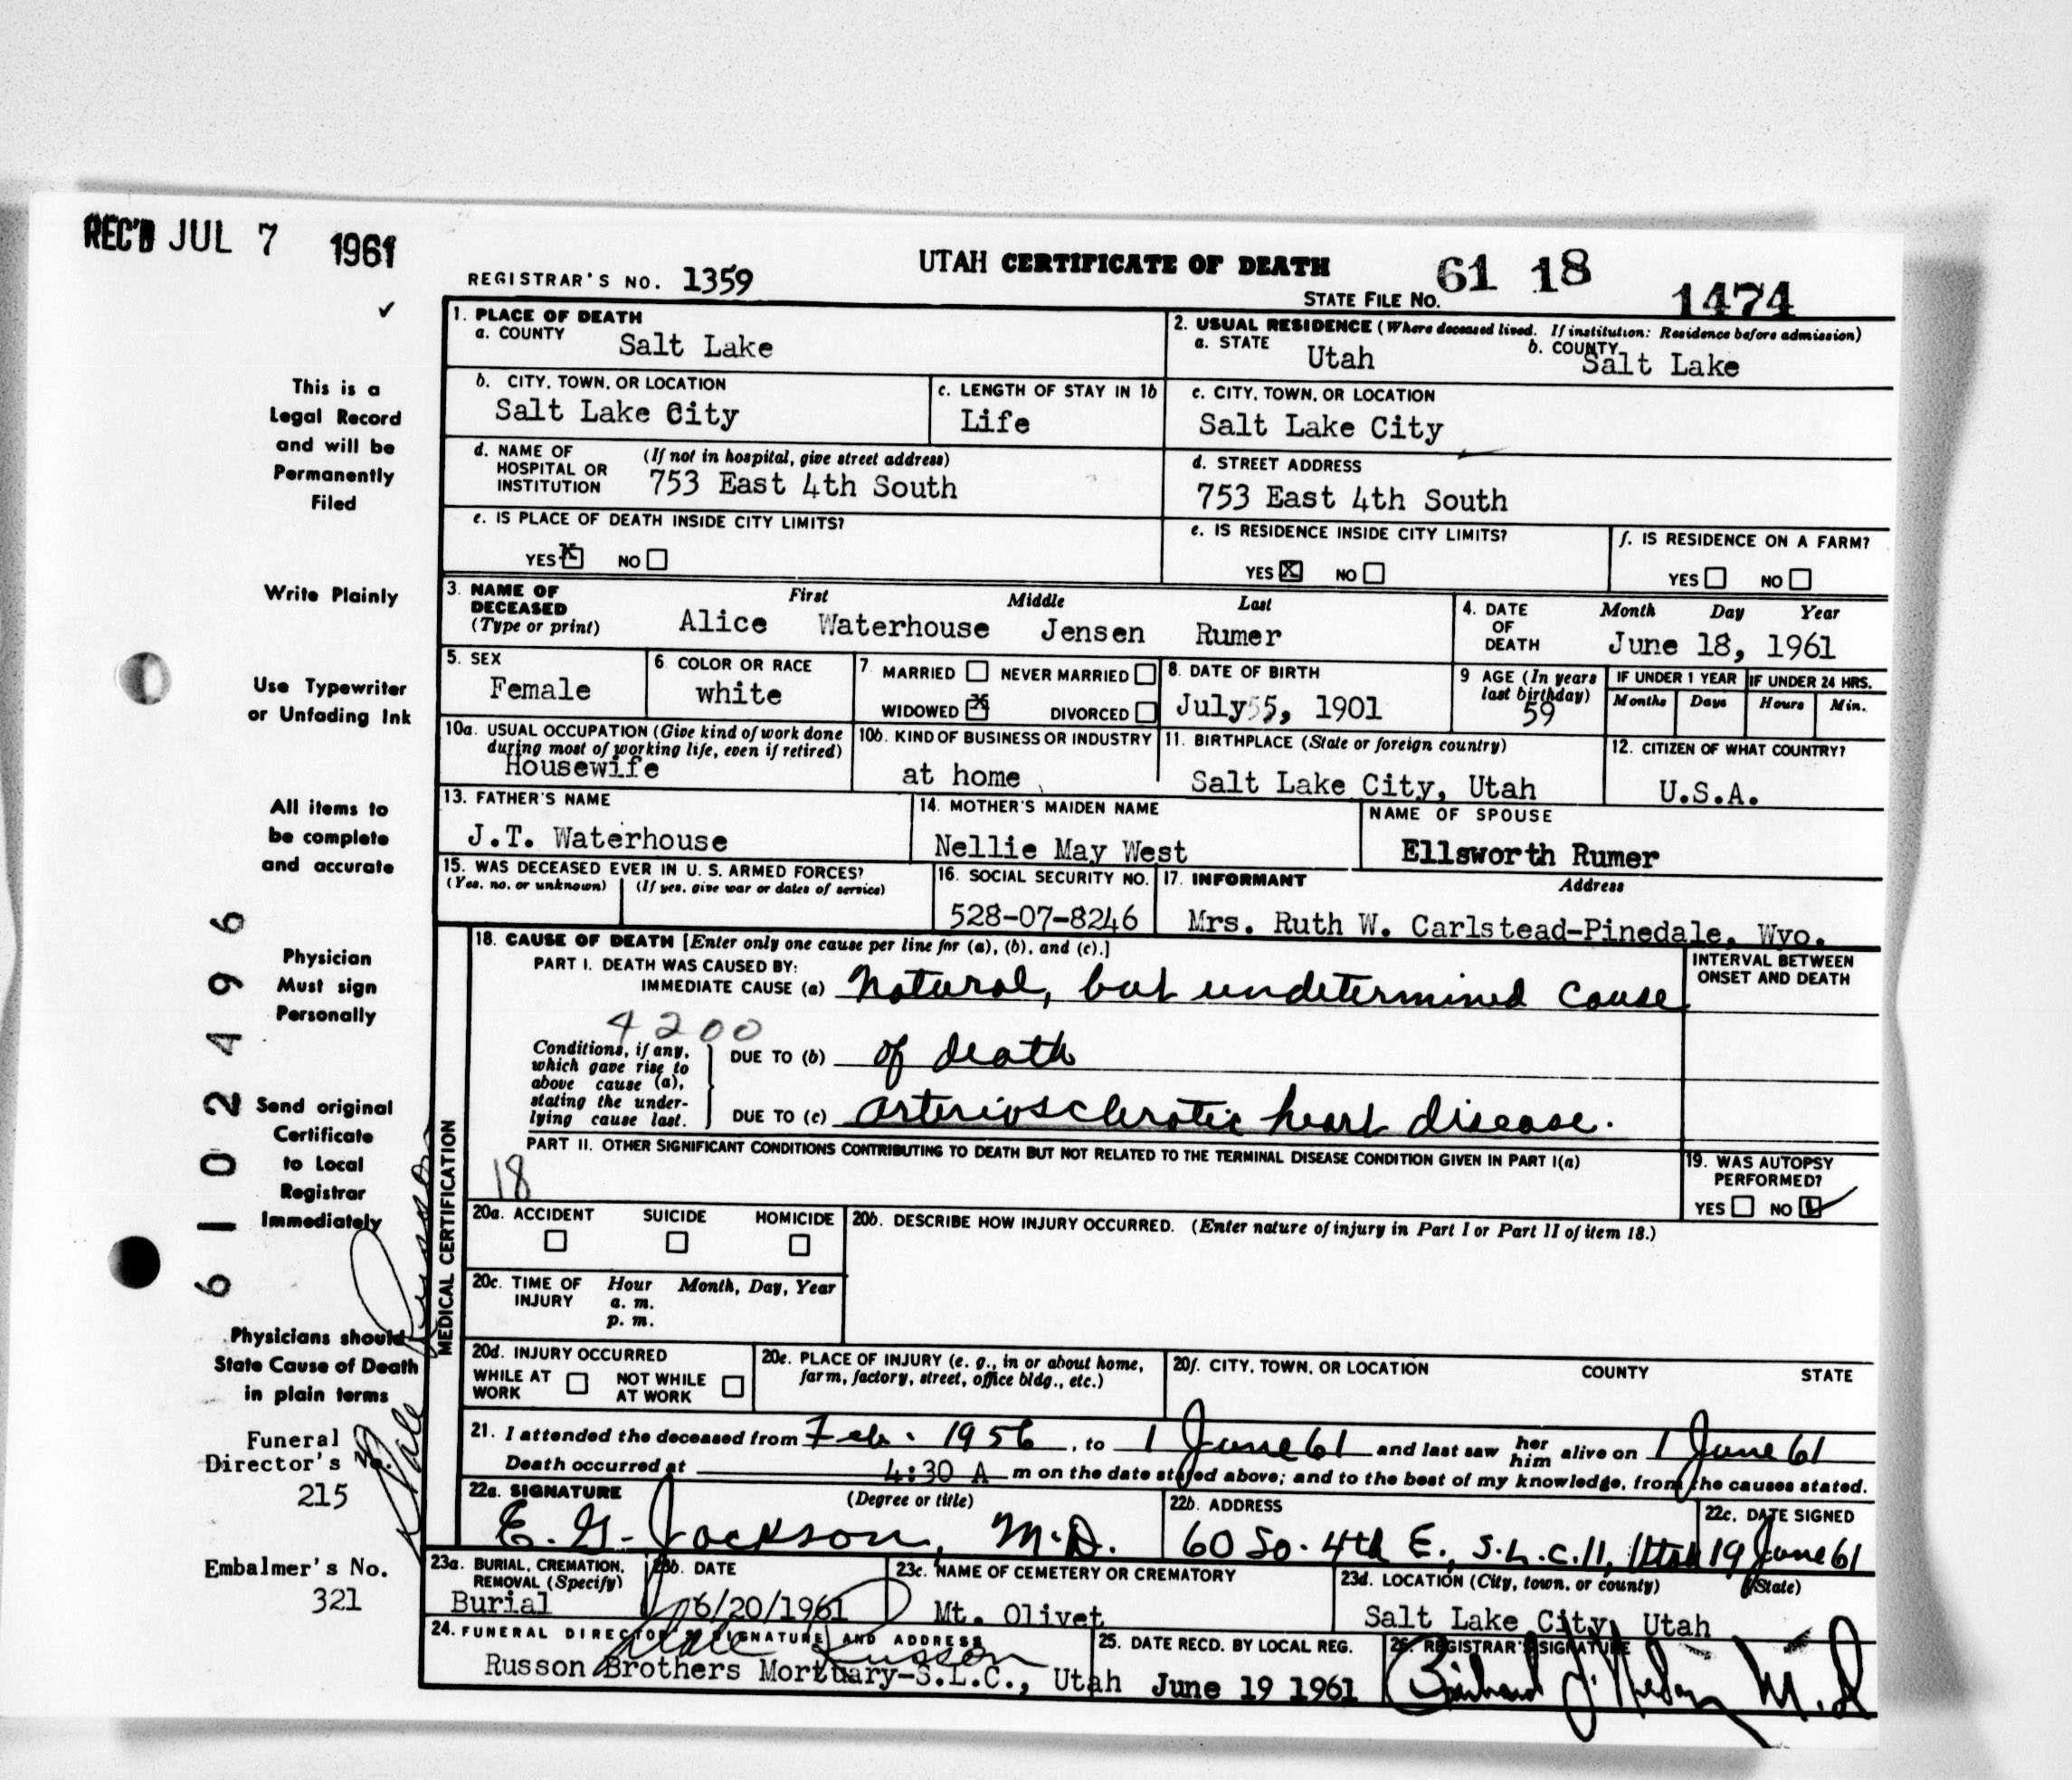 REC'D JUL 7 1961
REGISTRAR'S NO. 1359
UTAH CERTIFICATE OF DEATH
STATE FILE NO. 61 18 1474
✓
This is a
Legal Record
and will be
Permanently
Filed
Write Plainly
Use Typewriter
or Unfading Ink
All items to
be complete
and accurate
Physician
Must sign
Personally
Send original
Certificate
to Local
Registrar
Immediately
Physicians should
State Cause of Death
in plain terms
61024 96
Dale Russon
Funeral
Director's No.
215
Embalmer's No.
321
1. PLACE OF DEATH
a. COUNTY Salt Lake
2. USUAL RESIDENCE (Where deceased lived. If institution: Residence before admission)
a. STATE Utah b. COUNTY Salt Lake
b. CITY, TOWN, OR LOCATION
Salt Lake City
c. LENGTH OF STAY IN 1b
Life
c. CITY, TOWN, OR LOCATION
Salt Lake City
d. NAME OF HOSPITAL OR INSTITUTION (If not in hospital, give street address)
753 East 4th South
d. STREET ADDRESS
753 East 4th South
e. IS PLACE OF DEATH INSIDE CITY LIMITS?
YES X NO
e. IS RESIDENCE INSIDE CITY LIMITS?
YES X NO
f. IS RESIDENCE ON A FARM?
YES NO
3. NAME OF DECEASED (Type or print) First Middle Last
Alice Waterhouse Jensen Rumer
4. DATE OF DEATH Month Day Year
June 18, 1961
5. SEX
Female
6. COLOR OR RACE
white
7. MARRIED NEVER MARRIED
WIDOWED X DIVORCED
8. DATE OF BIRTH
July 5, 1901
9 AGE (In years last birthday)
59
IF UNDER 1 YEAR IF UNDER 24 HRS.
Months Days Hours Min.
10a. USUAL OCCUPATION (Give kind of work done during most of working life, even if retired)
Housewife
10b. KIND OF BUSINESS OR INDUSTRY
at home
11. BIRTHPLACE (State or foreign country)
Salt Lake City, Utah
12. CITIZEN OF WHAT COUNTRY?
U.S.A.
13. FATHER'S NAME
J.T. Waterhouse
14. MOTHER'S MAIDEN NAME
Nellie May West
NAME OF SPOUSE
Ellsworth Rumer
15. WAS DECEASED EVER IN U. S. ARMED FORCES?
(Yes, no, or unknown) (If yes, give war or dates of service)
16. SOCIAL SECURITY NO.
528-07-8246
17. INFORMANT Address
Mrs. Ruth W. Carlstead-Pinedale, Wyo.
MEDICAL CERTIFICATION
18. CAUSE OF DEATH [Enter only one cause per line for (a), (b), and (c).]
PART I. DEATH WAS CAUSED BY:
IMMEDIATE CAUSE (a) Natural, but undetermined cause
INTERVAL BETWEEN ONSET AND DEATH
4200
Conditions, if any, which gave rise to above cause (a), stating the underlying cause last.
DUE TO (b) of death
DUE TO (c) arteriosclerotic heart disease.
PART II. OTHER SIGNIFICANT CONDITIONS CONTRIBUTING TO DEATH BUT NOT RELATED TO THE TERMINAL DISEASE CONDITION GIVEN IN PART I(a)
18
19. WAS AUTOPSY PERFORMED?
YES NO ✓
20a. ACCIDENT SUICIDE HOMICIDE
20b. DESCRIBE HOW INJURY OCCURRED. (Enter nature of injury in Part I or Part II of item 18.)
20c. TIME OF INJURY Hour Month, Day, Year
a. m.
p. m.
20d. INJURY OCCURRED
WHILE AT WORK NOT WHILE AT WORK
20e. PLACE OF INJURY (e. g., in or about home, farm, factory, street, office bldg., etc.)
20f. CITY, TOWN, OR LOCATION COUNTY STATE
21. I attended the deceased from Feb. 1956, to 1 June 61 and last saw her him alive on 1 June 61
Death occurred at 4:30 A m on the date stated above; and to the best of my knowledge, from the causes stated.
22a. SIGNATURE (Degree or title)
E. G. Jackson, M.D.
22b. ADDRESS
60 So. 4th E., S.L.C. 11, Utah
22c. DATE SIGNED
19 June 61
23a. BURIAL, CREMATION, REMOVAL (Specify)
Burial
23b. DATE
6/20/1961
23c. NAME OF CEMETERY OR CREMATORY
Mt. Olivet
23d. LOCATION (City, town, or county) (State)
Salt Lake City, Utah
24. FUNERAL DIRECTOR'S SIGNATURE AND ADDRESS
Dale Russon
Russon Brothers Mortuary-S.L.C., Utah
25. DATE RECD. BY LOCAL REG.
June 19 1961
26. REGISTRAR'S SIGNATURE
M.D.